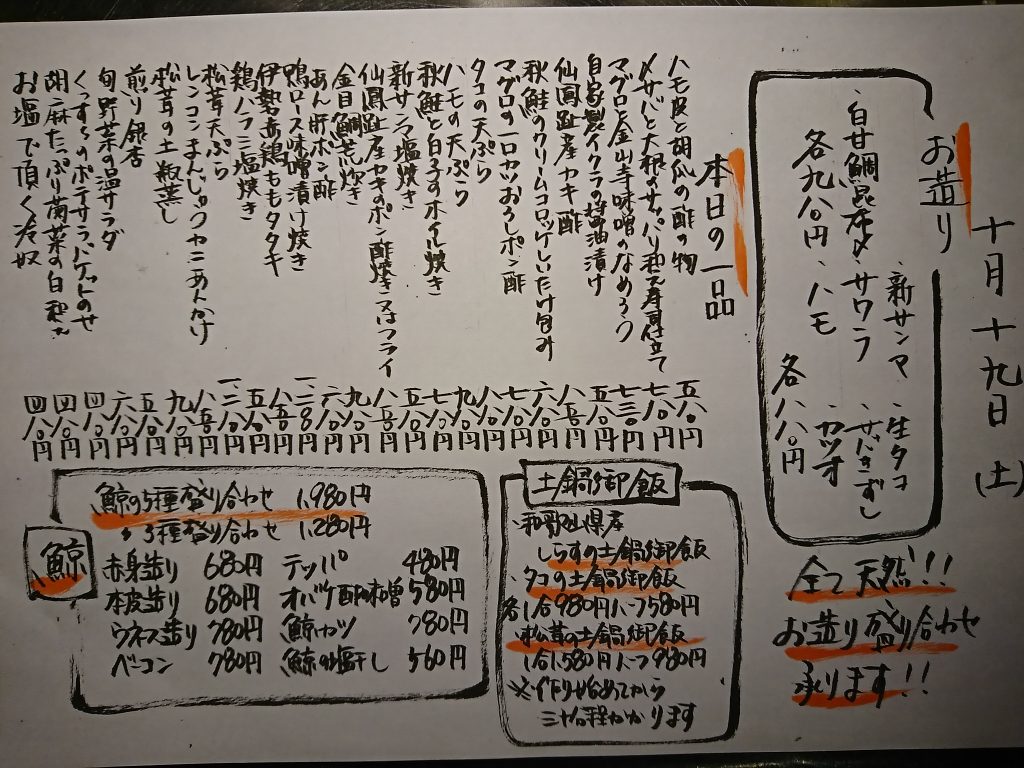 十月十九日(土)
お造り
・新サンマ ・生タコ
・白甘鯛昆布〆・サワラ ・サバきずし
各九八〇円 ・ハモ ・カツオ
各八八〇円
全て天然!!
お造り盛り合わせ
承ります!!
本日の一品
ハモ皮と胡瓜の酢の物 五八〇円
〆サバと大根のサッパリ和え寿司仕立て 七八〇円
マグロと金山寺味噌のなめろう 七三〇円
自家製イクラの醤油漬け 五八〇円
仙鳳趾産カキ酢
秋鮭のクリームコロッケしいたけ包み 六八〇円
マグロの一口カツおろしポン酢 七八〇円
タコの天ぷら 八八〇円
ハモの天ぷら 九八〇円
秋鮭と白子のホイル焼き 七八〇円
新サンマ塩焼き
仙鳳趾産カキのポン酢焼き又はフライ 八八〇円
金目鯛荒炊き 九八〇円
あん肝ポン酢 六八〇円
鴨ロース味噌漬け焼き
伊勢赤鶏ももタタキ
鶏ハラミ塩焼き 五八〇円
松茸天ぷら
レンコンまんじゅうカニあんかけ
松茸の土瓶蒸し 九八〇円
煎り銀杏 五八〇円
旬野菜の温サラダ 六八〇円
くっすんのポテサラバゲットのせ 四八〇円
胡麻たっぷり菊菜の白和え 四八〇円
お塩で頂く冷奴 四八〇円
土鍋御飯
・和歌山県産
しらすの土鍋御飯
・タコの土鍋御飯
各1合980円ハーフ580円
・松茸の土鍋御飯
1合1,580円ハーフ980円
※作り始めてから
三十分程かかります
鯨
鯨の5種盛り合わせ 1,980円
〃 3種盛り合わせ 1,280円
赤身造り 680円 テッパ 480円
本皮造り 680円 オバケ酢味噌 580円
ウネス造り 780円 鯨カツ 780円
ベーコン 780円 鯨の塩干し 560円